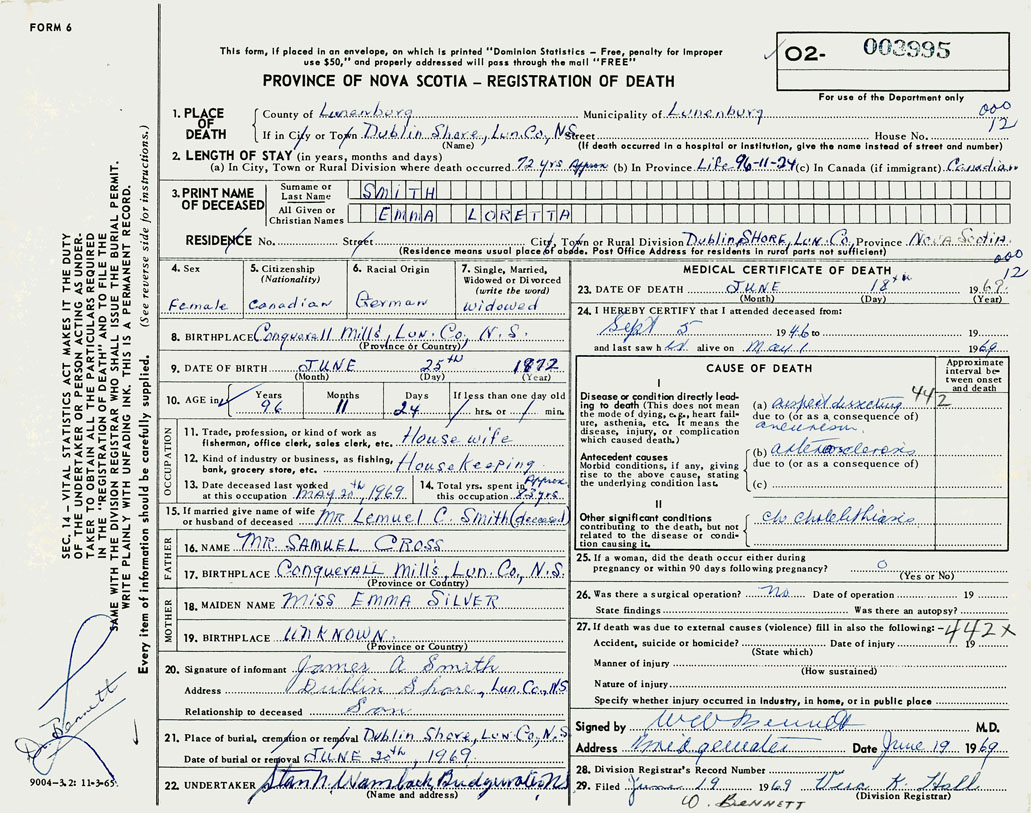 FORM 6
This form, if placed in an envelope, on which is printed "Dominion Statistics – Free, penalty for improper
use $50," and properly addressed will pass through the mail "FREE"
PROVINCE OF NOVA SCOTIA – REGISTRATION OF DEATH
O2- 003995
For use of the Department only
000
12
1. PLACE OF DEATH
County of Lunenburg Municipality of Lunenburg
If in City or Town Dublin Shore, Lun. Co, NS. Street House No.
(Name) (If death occurred in a hospital or institution, give the name instead of street and number)
2. LENGTH OF STAY (in years, months and days)
(a) In City, Town or Rural Division where death occurred 72 yrs Approx (b) In Province Life 96-11-24 (c) In Canada (if immigrant) Canadian
3. PRINT NAME OF DECEASED
Surname or Last Name SMITH
All Given or Christian Names EMMA LORETTA
RESIDENCE No. Street City, Town or Rural Division Dublin SHORE, Lun. Co, Province Nova Scotia.
(Residence means usual place of abode. Post Office Address for residents in rural parts not sufficient)
000
12
4. Sex
Female
5. Citizenship (Nationality)
Canadian
6. Racial Origin
German
7. Single, Married, Widowed or Divorced (write the word)
widowed
8. BIRTHPLACE Conquerall Mills, Lun. Co, N.S.
(Province or Country)
9. DATE OF BIRTH JUNE 25th 1872
(Month) (Day) (Year)
10. AGE in Years Months Days If less than one day old
96 11 24 hrs. or min.
OCCUPATION
11. Trade, profession, or kind of work as fisherman, office clerk, sales clerk, etc. House wife
12. Kind of industry or business, as fishing, bank, grocery store, etc. Housekeeping.
13. Date deceased last worked at this occupation MAY 20th, 1969
14. Total yrs. spent in this occupation Approx yrs
15. If married give name of wife or husband of deceased Mr Lemuel C. Smith (deceased)
FATHER
16. NAME MR. SAMUEL CROSS
17. BIRTHPLACE Conquerall Mill's, Lun. Co., N.S.
(Province or Country)
MOTHER
18. MAIDEN NAME Miss EMMA SILVER
19. BIRTHPLACE UNKNOWN.
(Province or Country)
20. Signature of informant James A Smith
Address Dublin Shore, Lun. Co., N.S
Relationship to deceased Son
21. Place of burial, cremation or removal Dublin Shore, Lun Co, N.S.
Date of burial or removal JUNE 20th, 1969.
22. UNDERTAKER
(Name and address)
MEDICAL CERTIFICATE OF DEATH
23. DATE OF DEATH JUNE 18th 1969
(Month) (Day) (Year)
24. I HEREBY CERTIFY that I attended deceased from:
Sept 5 1946 to 19
and last saw her alive on May 1 1969
CAUSE OF DEATH
Approximate interval between onset and death
I
Disease or condition directly leading to death (This does not mean the mode of dying, e.g., heart failure, asthenia, etc. It means the disease, injury, or complication which caused death.)
(a) suspect dissecting 442
due to (or as a consequence of)
aneurism.
Antecedent causes
Morbid conditions, if any, giving rise to the above cause, stating the underlying condition last.
(b) arteriosclerosis
due to (or as a consequence of)
(c)
II
Other significant conditions contributing to the death, but not related to the disease or condition causing it.
ch cholelithiasis
25. If a woman, did the death occur either during pregnancy or within 90 days following pregnancy? o
(Yes or No)
26. Was there a surgical operation? no Date of operation 19
State findings Was there an autopsy?
27. If death was due to external causes (violence) fill in also the following: -442X
Accident, suicide or homicide? Date of injury 19
(State which)
Manner of injury
(How sustained)
Nature of injury
Specify whether injury occurred in Industry, in home, or in public place
Signed by Bennett M.D.
Address Bridgewater Date June 19 1969
28. Division Registrar's Record Number
29. Filed June 19 1969 Vera K Hall
(Division Registrar)
W. BENNETT
SEC. 14 – VITAL STATISTICS ACT MAKES IT THE DUTY
OF THE UNDERTAKER OR PERSON ACTING AS UNDER-
TAKER TO OBTAIN ALL THE PARTICULARS REQUIRED
IN THE "REGISTRATION OF DEATH" AND TO FILE THE
SAME WITH THE DIVISION REGISTRAR WHO SHALL ISSUE THE BURIAL PERMIT.
WRITE PLAINLY WITH UNFADING INK. THIS IS A PERMANENT RECORD.
Every item of information should be carefully supplied. (See reverse side for instructions.)
Bennett
9004-3.2: 11-3-65